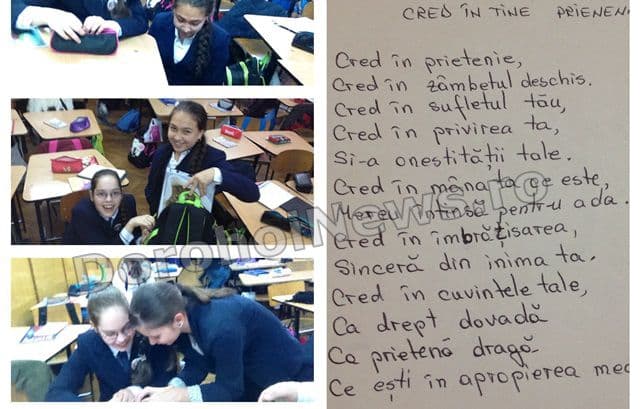 CRED ÎN TINE PRIENEN
Cred în prietenie,
Cred în zâmbetul deschis.
Cred în sufletul tău,
Cred în privirea ta,
Si-a onestității tale.
Cred în mâna ta ce este,
Mereu întinsă pentru a da.
Cred în îmbrățisarea,
Sinceră din inima ta.
Cred în cuvintele tale,
Ca drept dovadă
Ca prietenă dragă
Ce ești în apropierea
DorohoiNews.ro